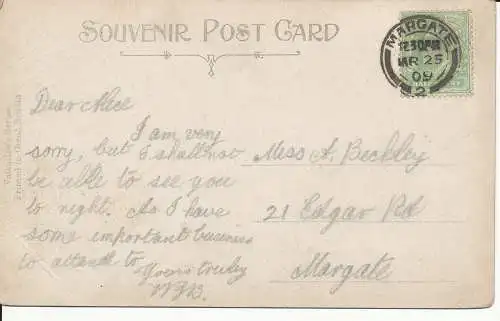 SOUVENIR POST CARD
MARGATE
12.30PM
MR 25
09
2
Valentine's Series
Printed in Great Britain
Dear
I am very
sorry, but I shall not
be able to see you
to night. As I have
some important business
to attend to
Yours truly
Miss A. Beckley
21 Edgar Rd
Margate